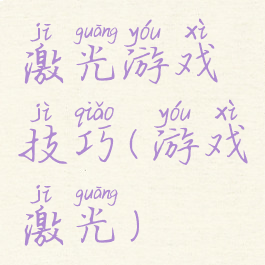 jī guāng yóu xì
激光游戏
jì qiǎo yóu xì
技巧(游戏
jī guāng
激光)